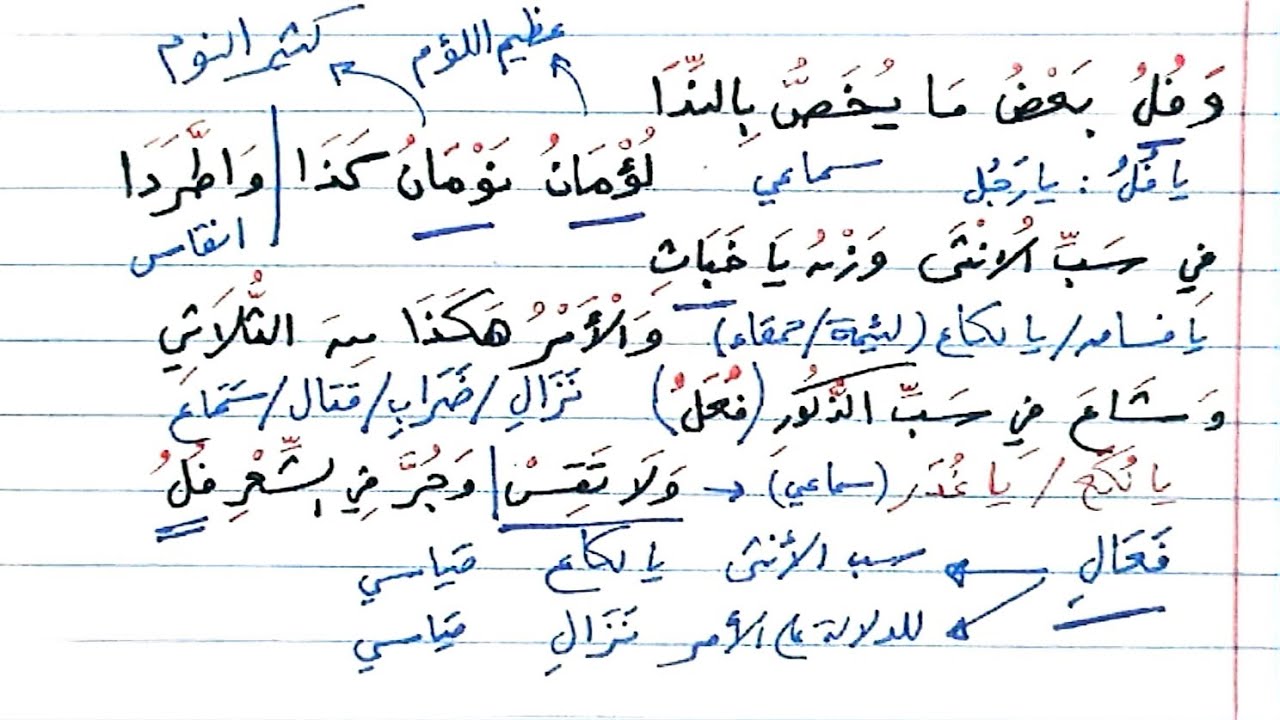 عظيم اللؤم كثير النوم
وَفُلُ بَعْضُ مَا يُخَصُّ بِالنِّدَا
يا فُلُ : يا رَجُل سماعي
لُؤْمَانُ نَوْمَانُ كَذَا | وَاطَّرَدَا
انقاس
فِي سَبِّ الأُنْثَى وَزْنُ يَا خَبَاثِ
يا فساق / يا لكاع (لئيمة / حمقاء) وَالْأَمْرُ هَكَذَا مِنَ الثُّلَاثِي
وَشَاعَ فِي سَبِّ الذُّكُورِ (فُعَلُ) نَزَالِ / ضَرَابِ / قتال / سَمَاعَ
يا لُكَعُ / يَا غُدَر (سماعي) وَلَا تَقِسْ | وَجُرَّ فِي الشِّعْرِ فُلُ
فَعَالِ سب الأنثى يا لكاع قياسي
للدلالة على الأمر نَزَالِ قياسي